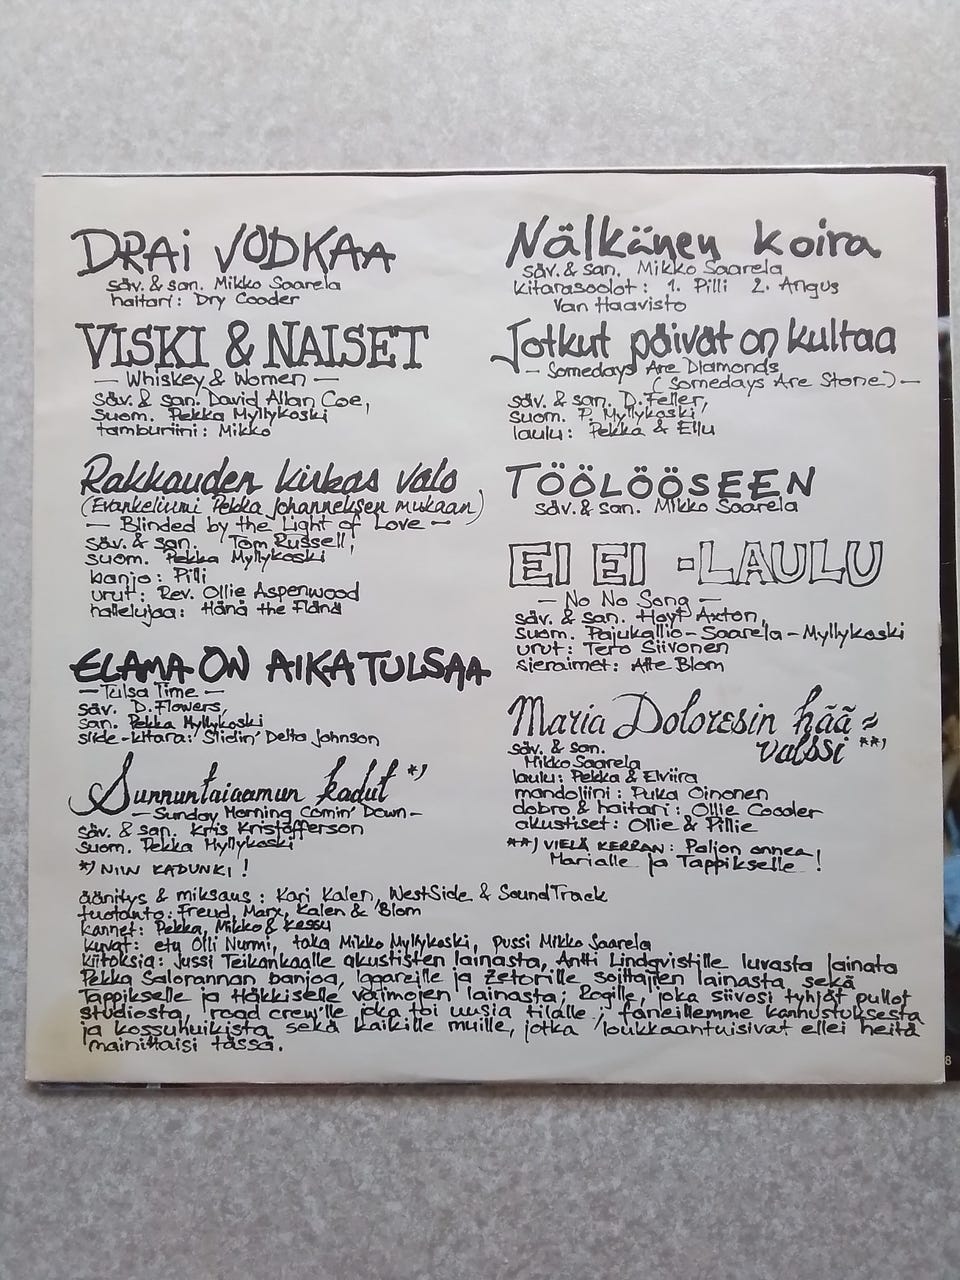 DRAi VODKAA
säv. & san. Mikko Saarela
haitari: Dry Cooder
VISKI & NAISET
— Whiskey & Women —
säv. & san. David Allan Coe,
suom. Pekka Myllykoski
tamburiini: Mikko
Rakkauden kirkas valo
(Evankeliumi Pekka Johanneksen mukaan)
— Blinded by the Light of Love —
säv. & san. Tom Russell,
suom. Pekka Myllykoski
banjo: Pilli
urut: Rev. Ollie Aspenwood
hallelujaa: Hänä the Fländ
ELÄMÄ ON AIKA TULSAA
— Tulsa Time —
säv. D. Flowers,
san. Pekka Myllykoski
slide-kitara: Slidin' Delta Johnson
Sunnuntaiaamun kadut *)
— Sunday Morning Comin' Down —
säv. & san. Kris Kristofferson
suom. Pekka Myllykoski
*) NIIN KADUNKI!
Nälkänen koira
säv. & san. Mikko Saarela
kitarasoolot: 1. Pilli 2. Angus
Van Haavisto
Jotkut päivät on kultaa
— Somedays Are Diamonds
(Somedays Are Stone) —
säv. & san. D. Feller,
suom. P. Myllykoski,
laulu: Pekka & Ellu
TÖÖLÖÖSEEN
säv. & san. Mikko Saarela
EI EI -LAULU
— No No Song —
säv. & san. Hoyt Axton,
suom. Pajukallio-Saarela-Myllykoski
urut: Tero Siivonen
sieraimet: Atte Blom
Maria Doloresin hää-
valssi **)
säv. & san.
Mikko Saarela
laulu: Pekka & Elviira
mandoliini: Puka Oinonen
dobro & haitari: Ollie Cooder
akustiset: Ollie & Pillie
**) VIELÄ KERRAN: Paljon onnea
Marialle ja Tappikselle!
äänitys & miksaus: Kari Kalen, WestSide & SoundTrack
tuotanto: Freud, Marx, Kalen & Blom
kannet: Pekka, Mikko & Kessu
kuvat: etu Olli Nurmi, taka Mikko Myllykoski, pussi Mikko Saarela
kiitoksia: Jussi Teikankaalle akustisten lainasta, Antti Lindqvistille luvasta lainata
Pekka Salorannan banjoa, lagareille ja Zetorille soittajien lainasta sekä
Tappikselle ja Häkkiselle vaimojen lainasta; Rogille, joka siivosi tyhjät pullot
studiosta, road crew'lle joka toi uusia tilalle; faneillemme kanhustuksesta
ja kossuhuikista sekä kaikille muille, jotka loukkaantuisivat ellei heitä
mainittaisi tässä.
8